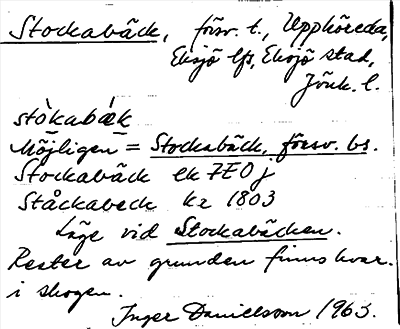 Stockabäck, försv. t., Upphöreda,
Eksjö lfs, Eksjö stad,
Jönk. l.
stòkabæ̀k
Möjligen = Stockabäck, försv. bs.
Stockabäck ek 7E0j
Ståckabeck kr 1803
Läge vid Stockabäcken.
Rester av grunden finns kvar
i skogen.
Inger Danielsson 1963.